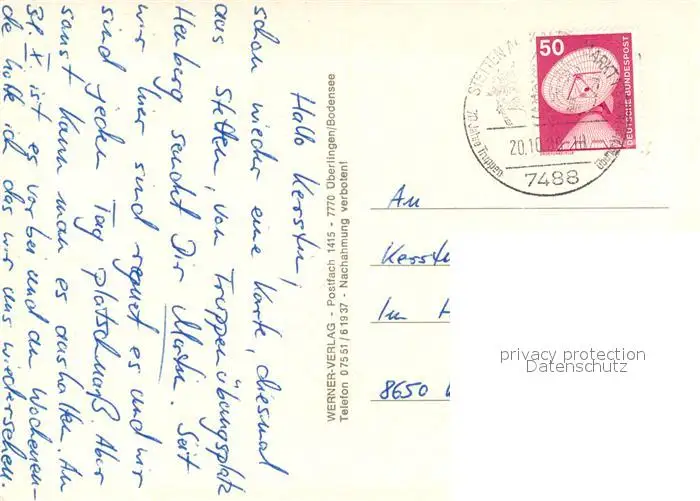 Hallo Kerstin,
schon wieder eine Karte, diesmal
aus Stetten, vom Truppenübungsplatz
Heuberg sendet Dir Martin. Seit
wir hier sind regnet es und wir
sind jeden Tag platschnaß. Aber
sonst kann man es aushalten. Am
31. X ist es vorbei und am Wochenen-
de hoffe ich das wir uns wiedersehen.
WERNER-VERLAG - Postfach 1415 - 7770 Überlingen/Bodensee
Telefon 07551/61937 - Nachahmung verboten!
50
DEUTSCHE BUNDESPOST
STETTEN
MARKT
70 Jahre Truppen
20.10.
7488
An
Kersti
Im H
8650
privacy protection
Datenschutz